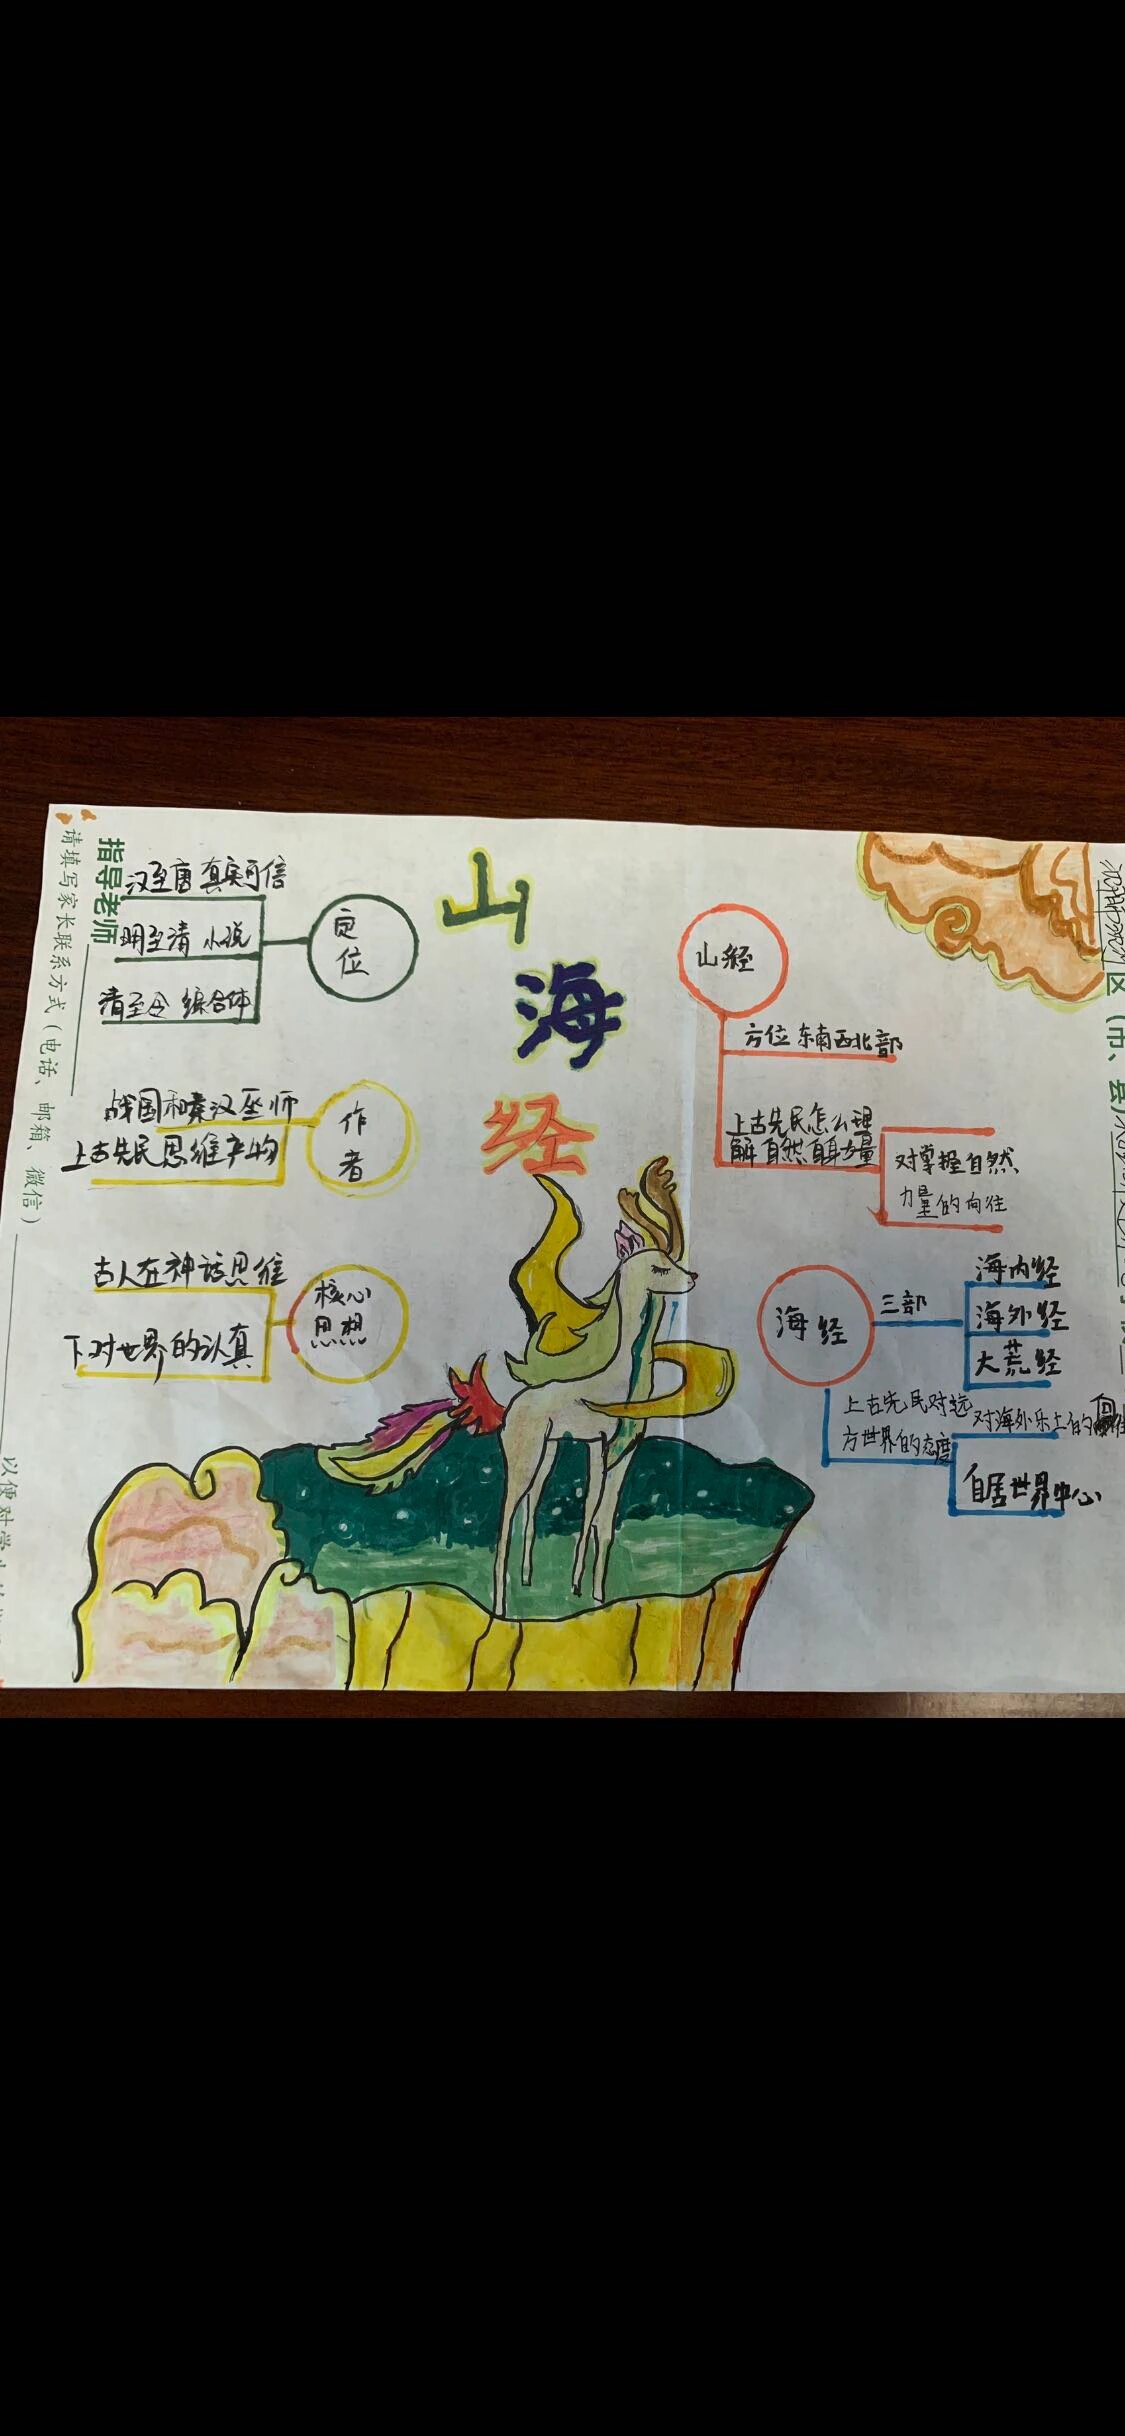 山
海
经
指导老师
请填写家长联系方式（电话、邮箱、微信）
汉至唐 真实可信
明至清 小说
清至今 综合体
定
位
战国和秦汉巫师
上古先民思维产物
作
者
古人在神话思维
下对世界的认真
核心
思想
山经
方位 东南西北部
上古先民怎么理
解自然自身力量
对掌握自然
力量的向往
海经
三部
海内经
海外经
大荒经
上古先民对远
方世界的态度
对海外乐土的
自居世界中心
区（市、县）